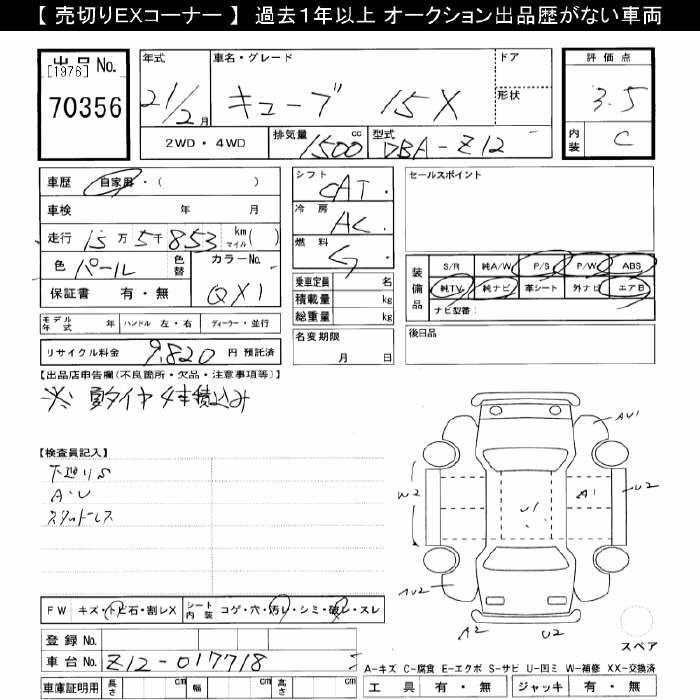 【 売切りEXコーナー 】 過去1年以上 オークション出品歴がない車両
出品 No.
[1976]
70356
年式
21/2 月
車名・グレード
キューブ 15X
ドア
形状
2WD・4WD
排気量 1500 cc
型式 DBA-Z12
評価点
3.5
内装 C
車歴 自家用・( )
車検 年 月
走行 15万5千853 km マイル( )
色 パール 色替
カラーNo.
QX1
保証書 有・無
シフト CAT
冷房 AC
燃料 G
乗車定員 名
積載量 kg
総重量 kg
名変期限
月 日
セールスポイント
装備品
S/R 純A/W P/S P/W ABS
純TV 純ナビ 革シート 外ナビ エアB
ナビ型番：
後日品
モデル年式 年 ハンドル 左・右 ディーラー・並行
リサイクル料金 9,820 円 預託済
【出品店申告欄(不良箇所・欠品・注意事項等)】
※ 夏タイヤ 4本積込み
【検査員記入】
下廻りS
A・U
スタッドレス
AU1
W2
U1
A1
U2
AU2
A2
U2
スペア
FW キズ・トビ石・割レX シート内装 コゲ・穴・汚レ・シミ・破レ・スレ
登録 No.
車台 No. Z12-017718
車庫証明用 長さ cm 幅 cm 高さ cm
A-キズ C-腐食 E-エクボ S-サビ U-凹ミ W-補修 XX-交換済
工具 有・無 ジャッキ 有・無